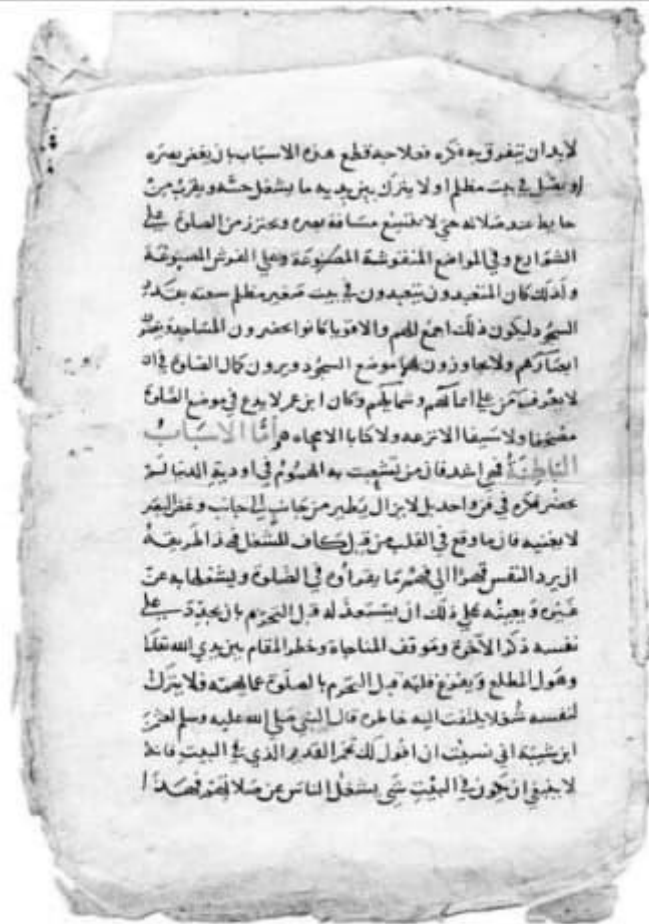 لابد ان يتفرق به فكره فعلاجه قطع هذه الاسباب بان يغض بصره
او يصلي في بيت مظلم او لا يترك بين يديه ما يشغل حسه ويقرب من
حايط عند صلاته حتى لا تتسع مسافة بصره ويحترز من الصلوة على
الشوارع وفي المواضع المنقوشة المصنوعة وعلى الفرش المصبوغة
ولذلك كان المتعبدون يتعبدون في بيت صغير مظلم سعته بقدر
السجود ليكون ذلك اجمع للهم والاقويا كانوا يحضرون المساجد ويغضون
ابصارهم ولا يجاوزون بها موضع السجود ويرون كمال الصلوة في ان
لا يعرفوا من على ايمانهم وشمايلهم وكان ابن عمر لا يدع في موضع الصلوة
مصحفا ولا سيفا الا نزعه ولا كتابا الا محاه واما الاسباب
الباطنة فهي اشد فان من تشعبت به الهموم في اودية الدنيا لم
ينحصر فكره في فن واحد بل لا يزال يطير من جانب الى جانب وغض البصر
لا يغنيه فان ما وقع في القلب من قبل كاف للشغل فهذا طريقه
ان يرد النفس قهرا الى فهم ما يقراوه في الصلوة ويشغلها به عن
غيره ويعينه على ذلك ان يستعد له قبل التحرم بان يجدد على
نفسه ذكر الآخرة وموقف المناجاة وخطر المقام بين يدي الله تعالى
وهول المطلع ويفرغ قلبه قبل التحرم بالصلوة عما يهمه فلا يترك
لنفسه شغلا يلتفت اليه خاطره قال النبي صلى الله عليه وسلم لعثمن
ابن شيبة اني نسيت ان اقول لك تخمر القدر الذي في البيت فانه
لا ينبغي ان يكون في البيت شي يشغل الناس عن صلاتهم فهذا